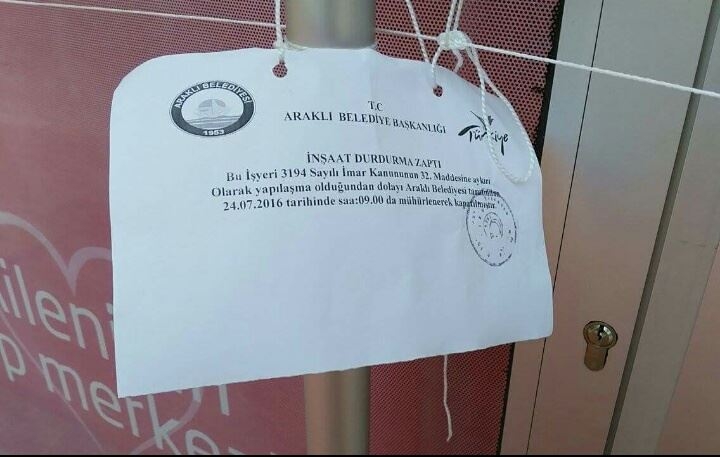 ARAKLI BELEDİYESİ
1953
T.C
ARAKLI BELEDİYE BAŞKANLIĞI
Türkiye
İNŞAAT DURDURMA ZAPTI
Bu İşyeri 3194 Sayılı İmar Kanununun 32. Maddesine aykırı
Olarak yapılaşma olduğundan dolayı Araklı Belediyesi tarafından
24.07.2016 tarihinde saa:09.00 da mühürlenerek kapatılmıştır.
ileni
p merkez